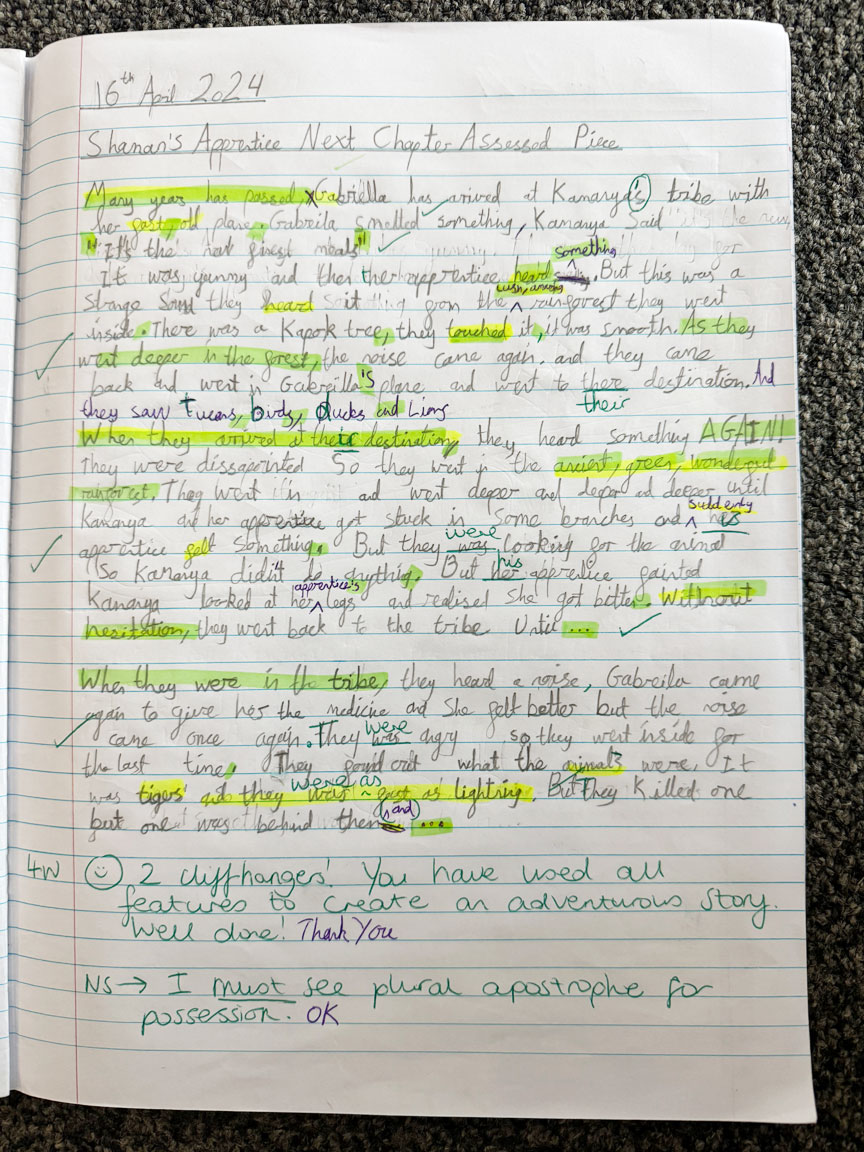 16th April 2024
Shaman's Apprentice Next Chapter Assessed Piece
Many years has passed, Gabriella has arrived at Kamanya's tribe with
her fast old plane. Gabreila smelled something, Kamanya said
"It's the next finest meals"
something
It was yummy and then the apprentice heard. But this was a
lush, amazing
strange sound they heard it from the rainforest they went
inside. There was a Kapok tree, they touched it, it was smooth. As they
went deeper in the forest, the noise came again. and they came
back and went in Gabreilla's plane and went to there destination. And
they saw Tucans, birds, ducks and Lions
their
When they arrived at their destination, they heard something AGAIN!
They were dissapointed So they went in the ancient, green, wonderful
rainforest. They went in and went deeper and deeper and deeper until
Suddenly
Kamanya and her apprentice got stuck in some branches and his
were
apprentice felt something. But they was looking for the animal
his
So Kamanya didn't do anything. But her apprentice fainted
apprentice's
Kamanya looked at her legs and realised she got better. Without
hesitation, they went back to the tribe Until ...
When they were in the tribe, they heard a noise, Gabreila came
again to give her the medicine and She felt better but the noise
were
came once again. They was angry so they went inside for
the last time. They found out what the animals were. It
were as
was tigers and they was fast as lightning. But They killed one
and
but one was behind them ...
4W 2 cliffhanges! You have used all
features to create an adventurous story.
Well done! Thank You
NS → I must see plural apostrophe for
possession. OK